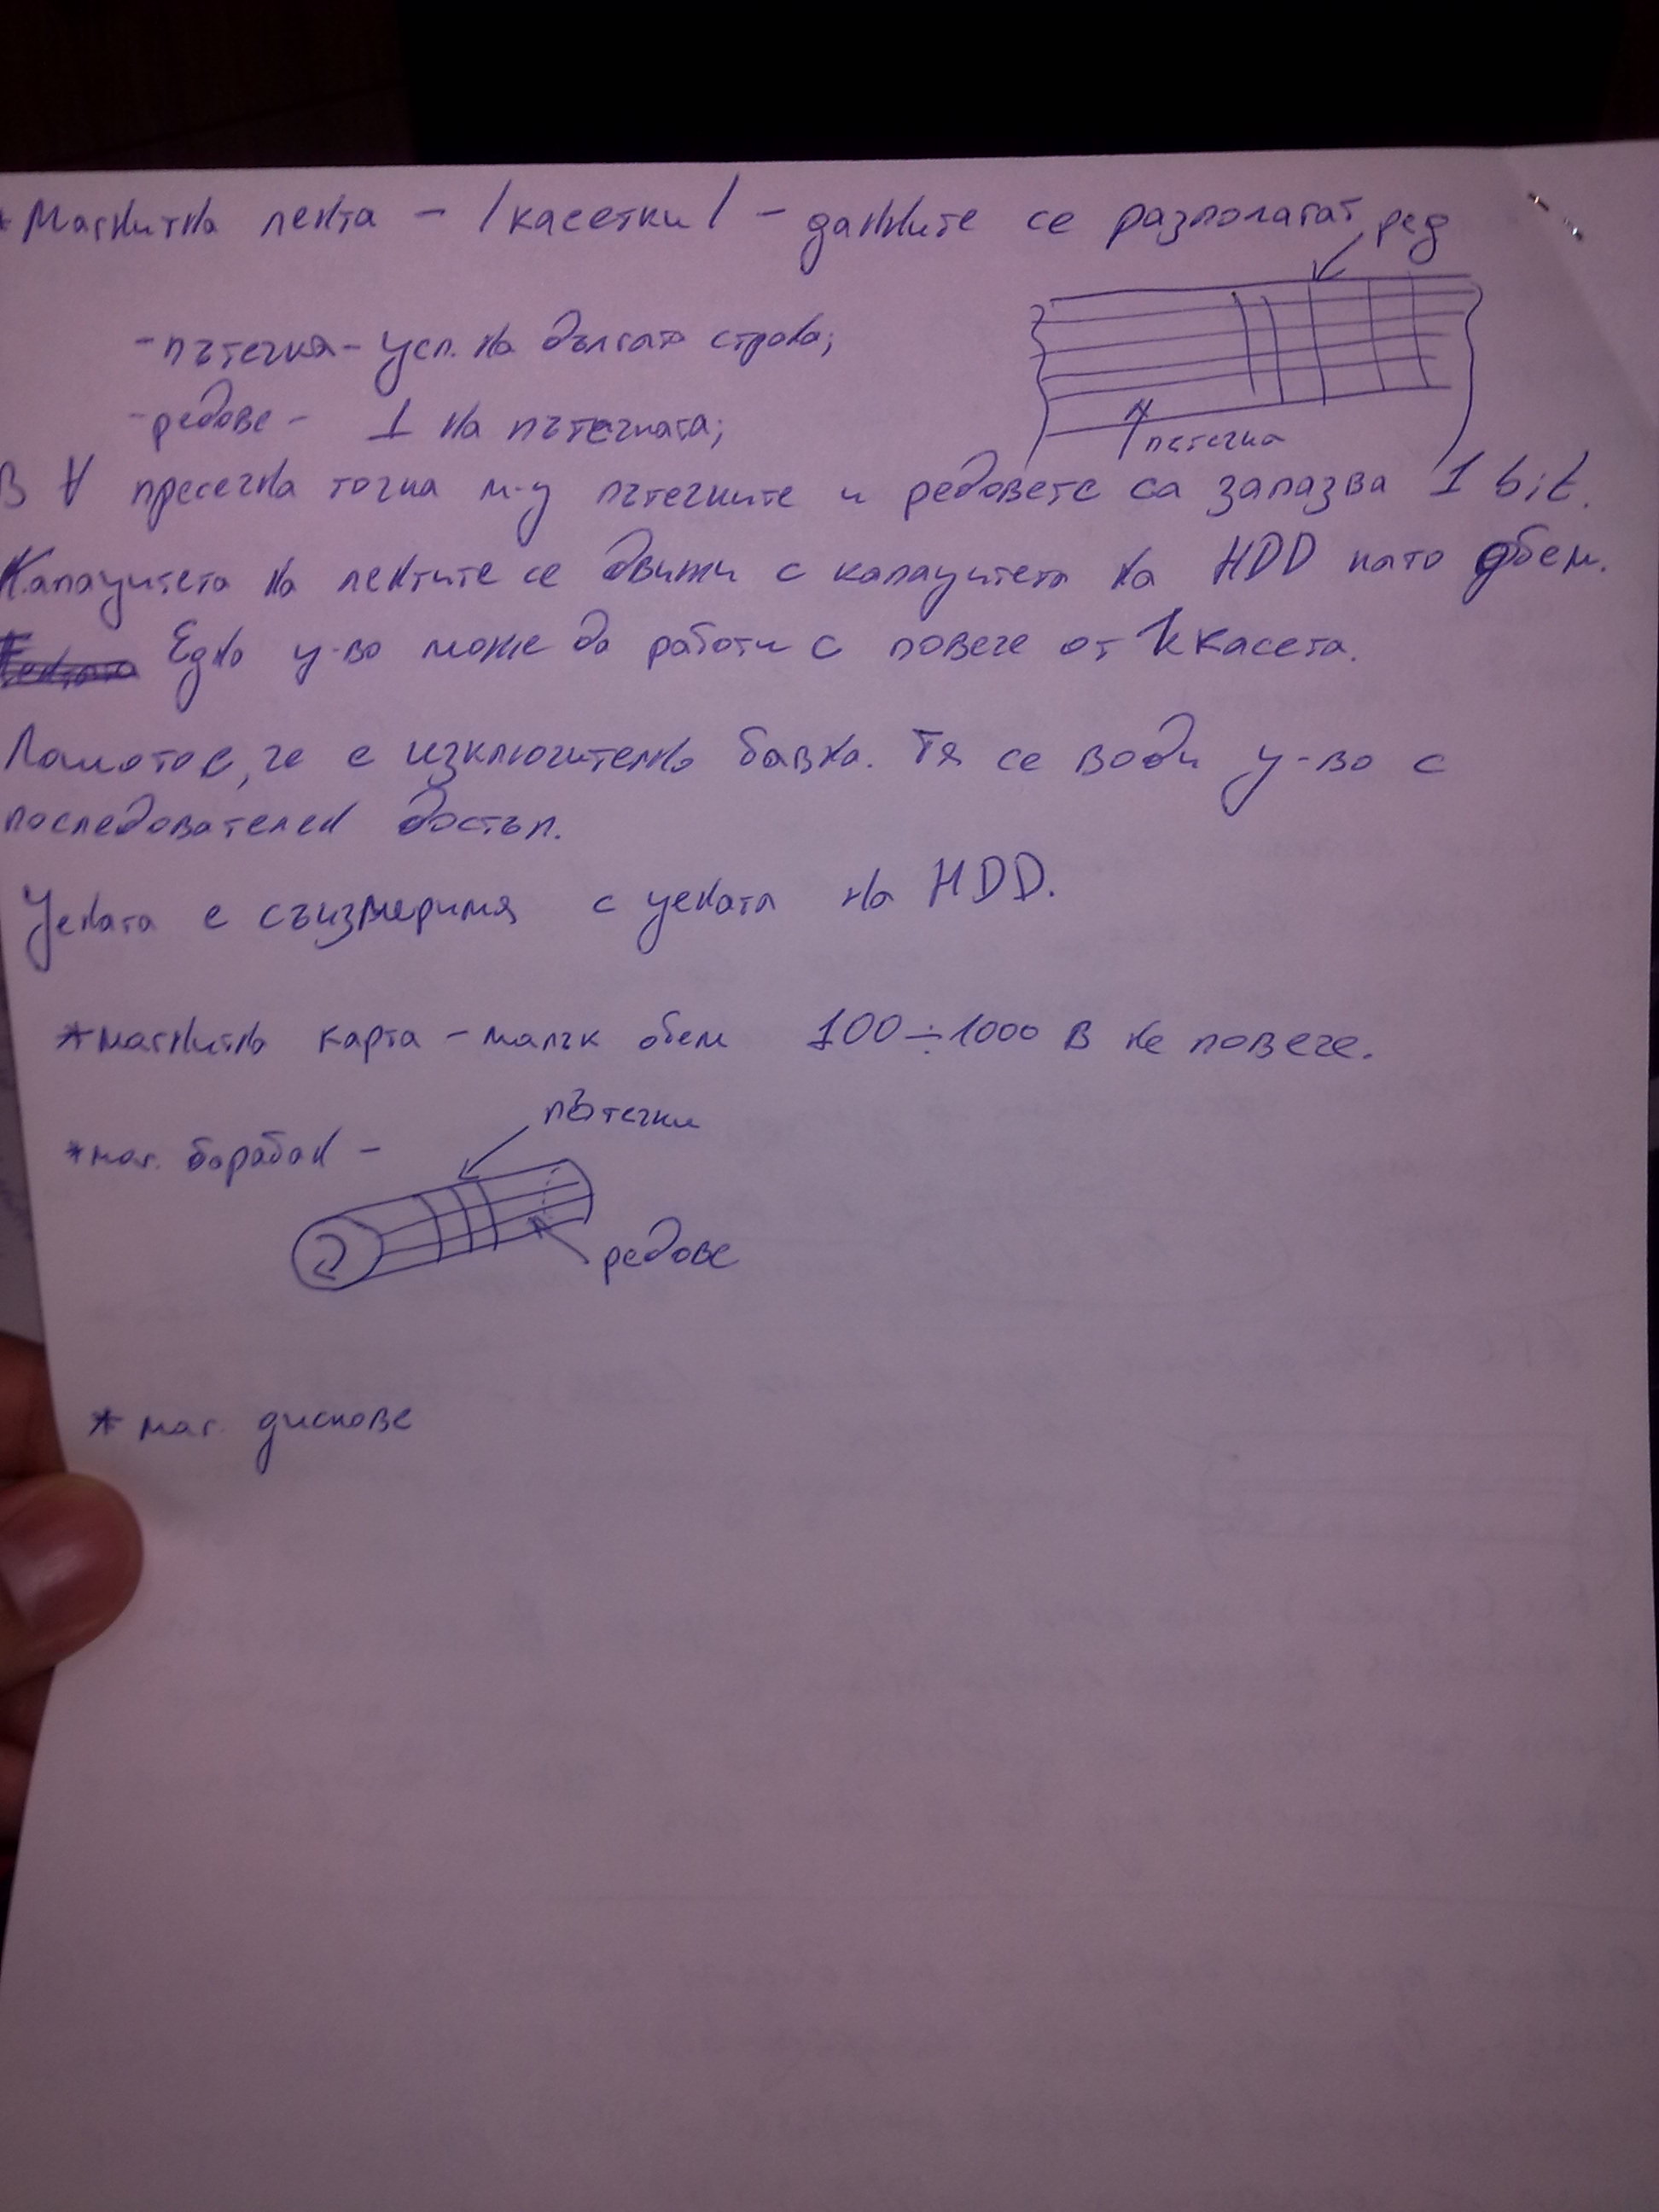 * Магнитна лента - /касетки/ - данните се разполагат
ред
- пътечка - усп. на дългата страна;
- редове - ⊥ на пътечката;
пътечка
В ∀ пресечна точка м-у пътечките и редовете са запазва 1 bit.
Капацитета на лентите се движи с капацитета на HDD като обем.
Едно у-во може да работи с повече от 1 касета.
Лошото е, че е изключително бавна. Тя се води у-во с
последователен достъп.
Цената е съизмерима с цената на HDD.
* магнитна карта - малък обем 100 ÷ 1000 B не повече.
пътечки
* маг. барабан -
редове
* маг. дискове